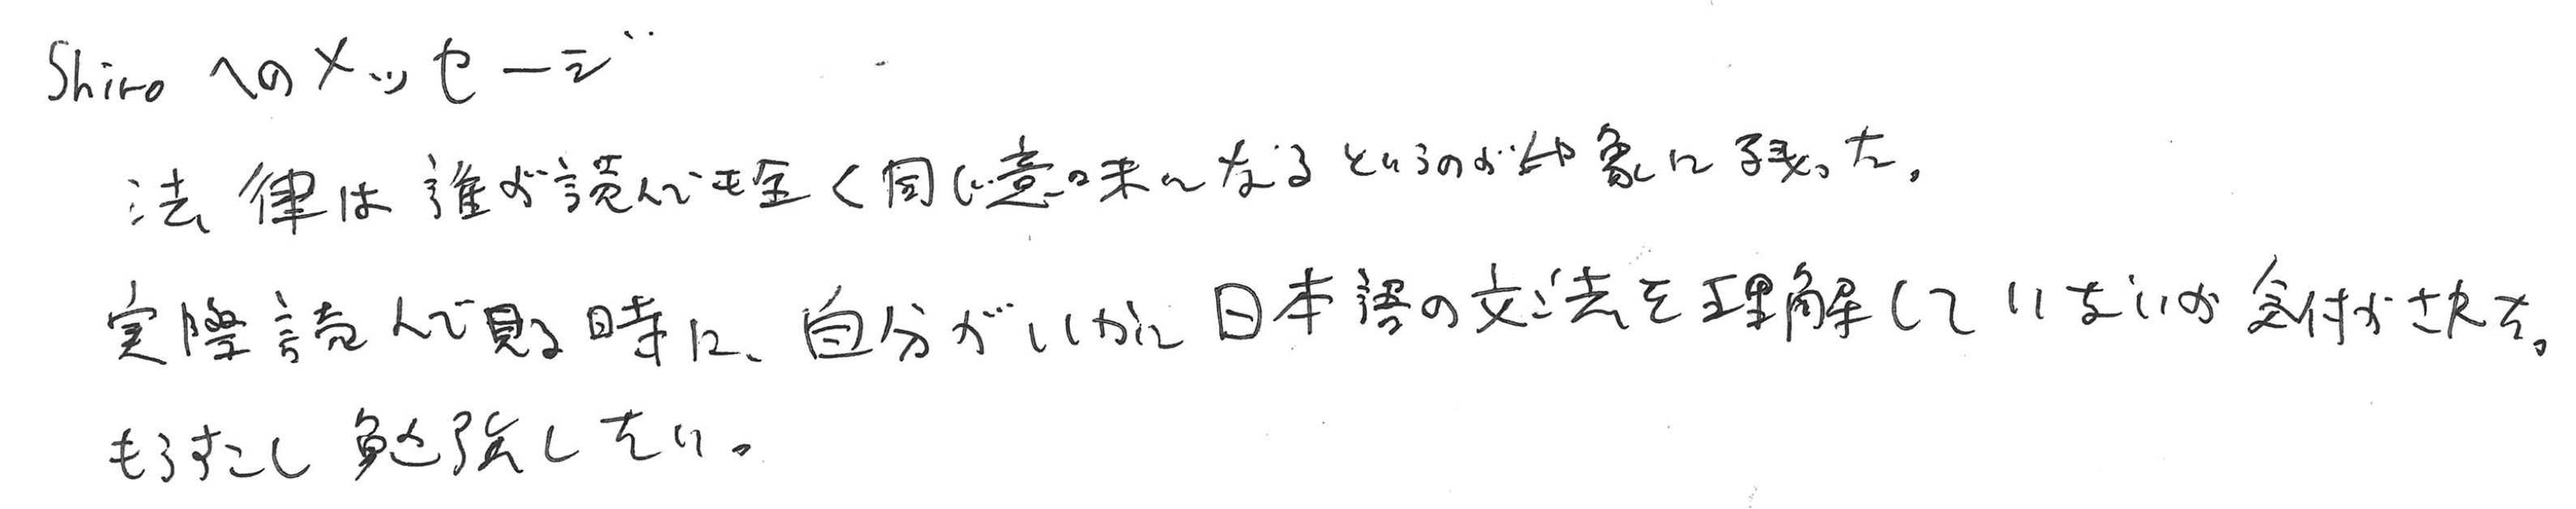 Shiroへのメッセージ
法律は誰が読んでも全く同じ意味になるというのが印象に残った。
実際読んで見る時に、自分がいかに日本語の文法を理解していないか気付かされた。
もうすこし勉強したい。